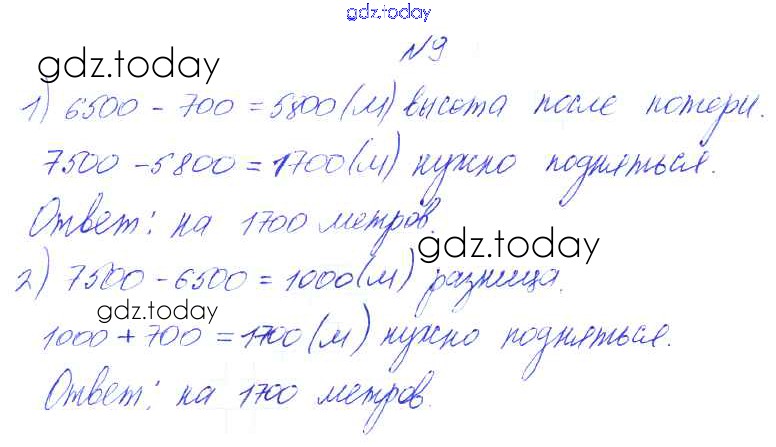 gdz.today
№9
gdz.today
1) 6500 - 700 = 5800 (м) высота после потери.
7500 - 5800 = 1700 (м) нужно подняться.
Ответ: на 1700 метров.
gdz.today
2) 7500 - 6500 = 1000 (м) разница.
gdz.today
1000 + 700 = 1700 (м) нужно подняться.
Ответ: на 1700 метров.